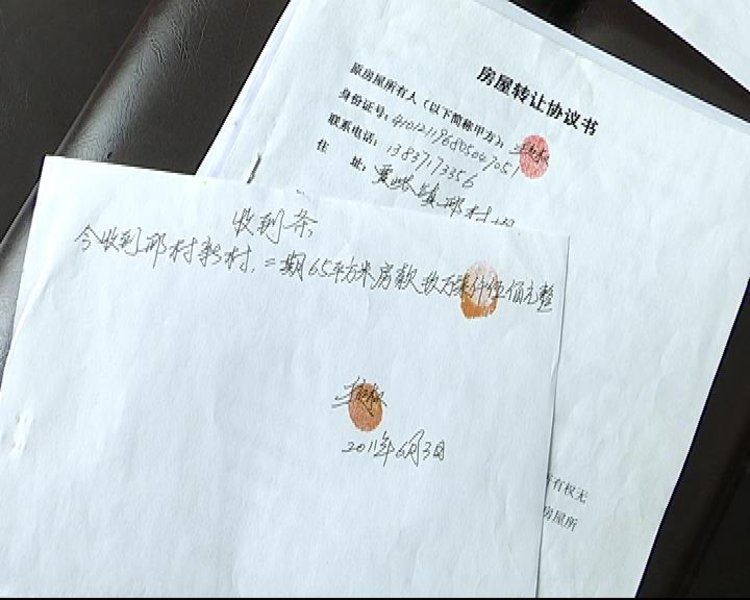 房屋转让协议书
原房屋所有人（以下简称甲方）：
身份证号：410121196805047051
联系电话：13837173356
住 址：贾峪镇邢村
收到条
今收到邢村新村，二期65平方米房款玖万柒仟伍佰元整
2011年6月3日
所有权无
房屋所